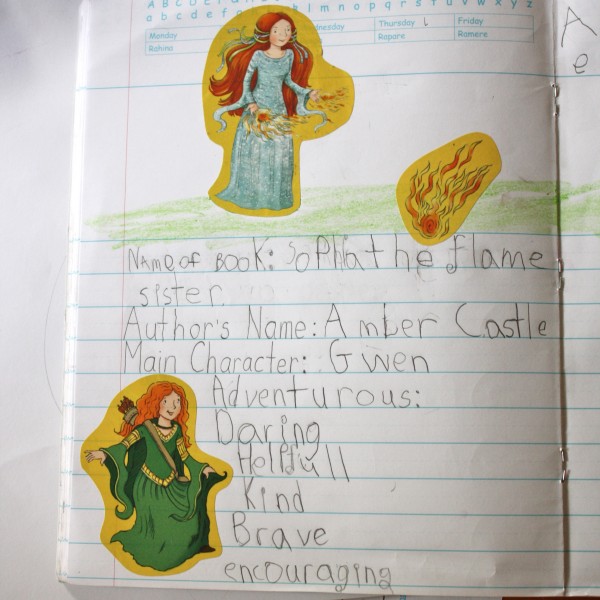 A B C D E
a b c d e f g h l m n o p q r s t u v w x y z
Monday nesday Thursday L Friday
Rahina Rapare Ramere
A
e
Name of BooK: Sophia the flame
sister.
Author's Name: Amber Castle
Main Character: Gwen
Adventurous:
Daring
Helpfull
Kind
Brave
encouraging